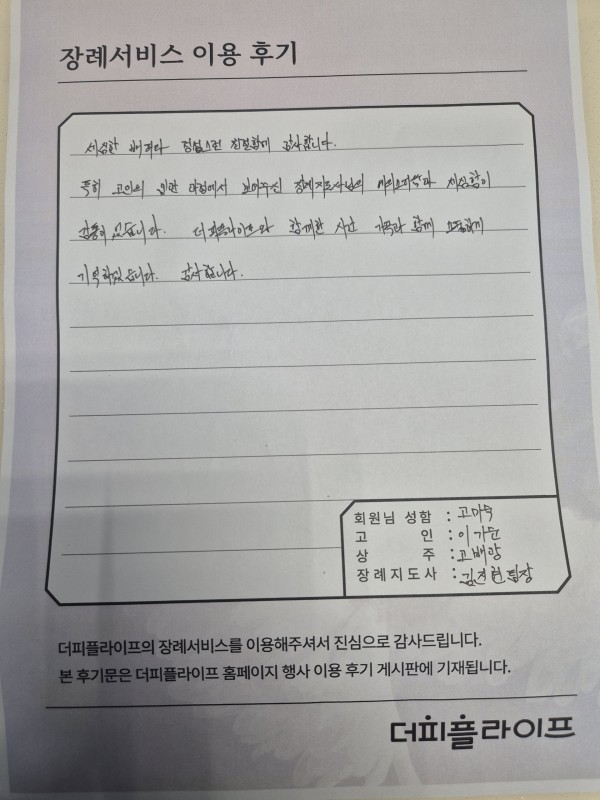 장례서비스 이용 후기
세심한 배려와 정성스런 친절함에 감사합니다.
특히 고인의 입관 과정에서 보여주신 장례지도사님의 세심함이
감동이 있습니다. 더피플라이프와 함께한 시간 가족과 함께 소중하게
기억하겠습니다. 감사합니다.
회원님 성함 : 고마숙
고 인 : 이가순
상 주 : 고배광
장례지도사 : 김 팀장
더피플라이프의 장례서비스를 이용해주셔서 진심으로 감사드립니다.
본 후기문은 더피플라이프 홈페이지 행사 이용 후기 게시판에 기재됩니다.
더피플라이프